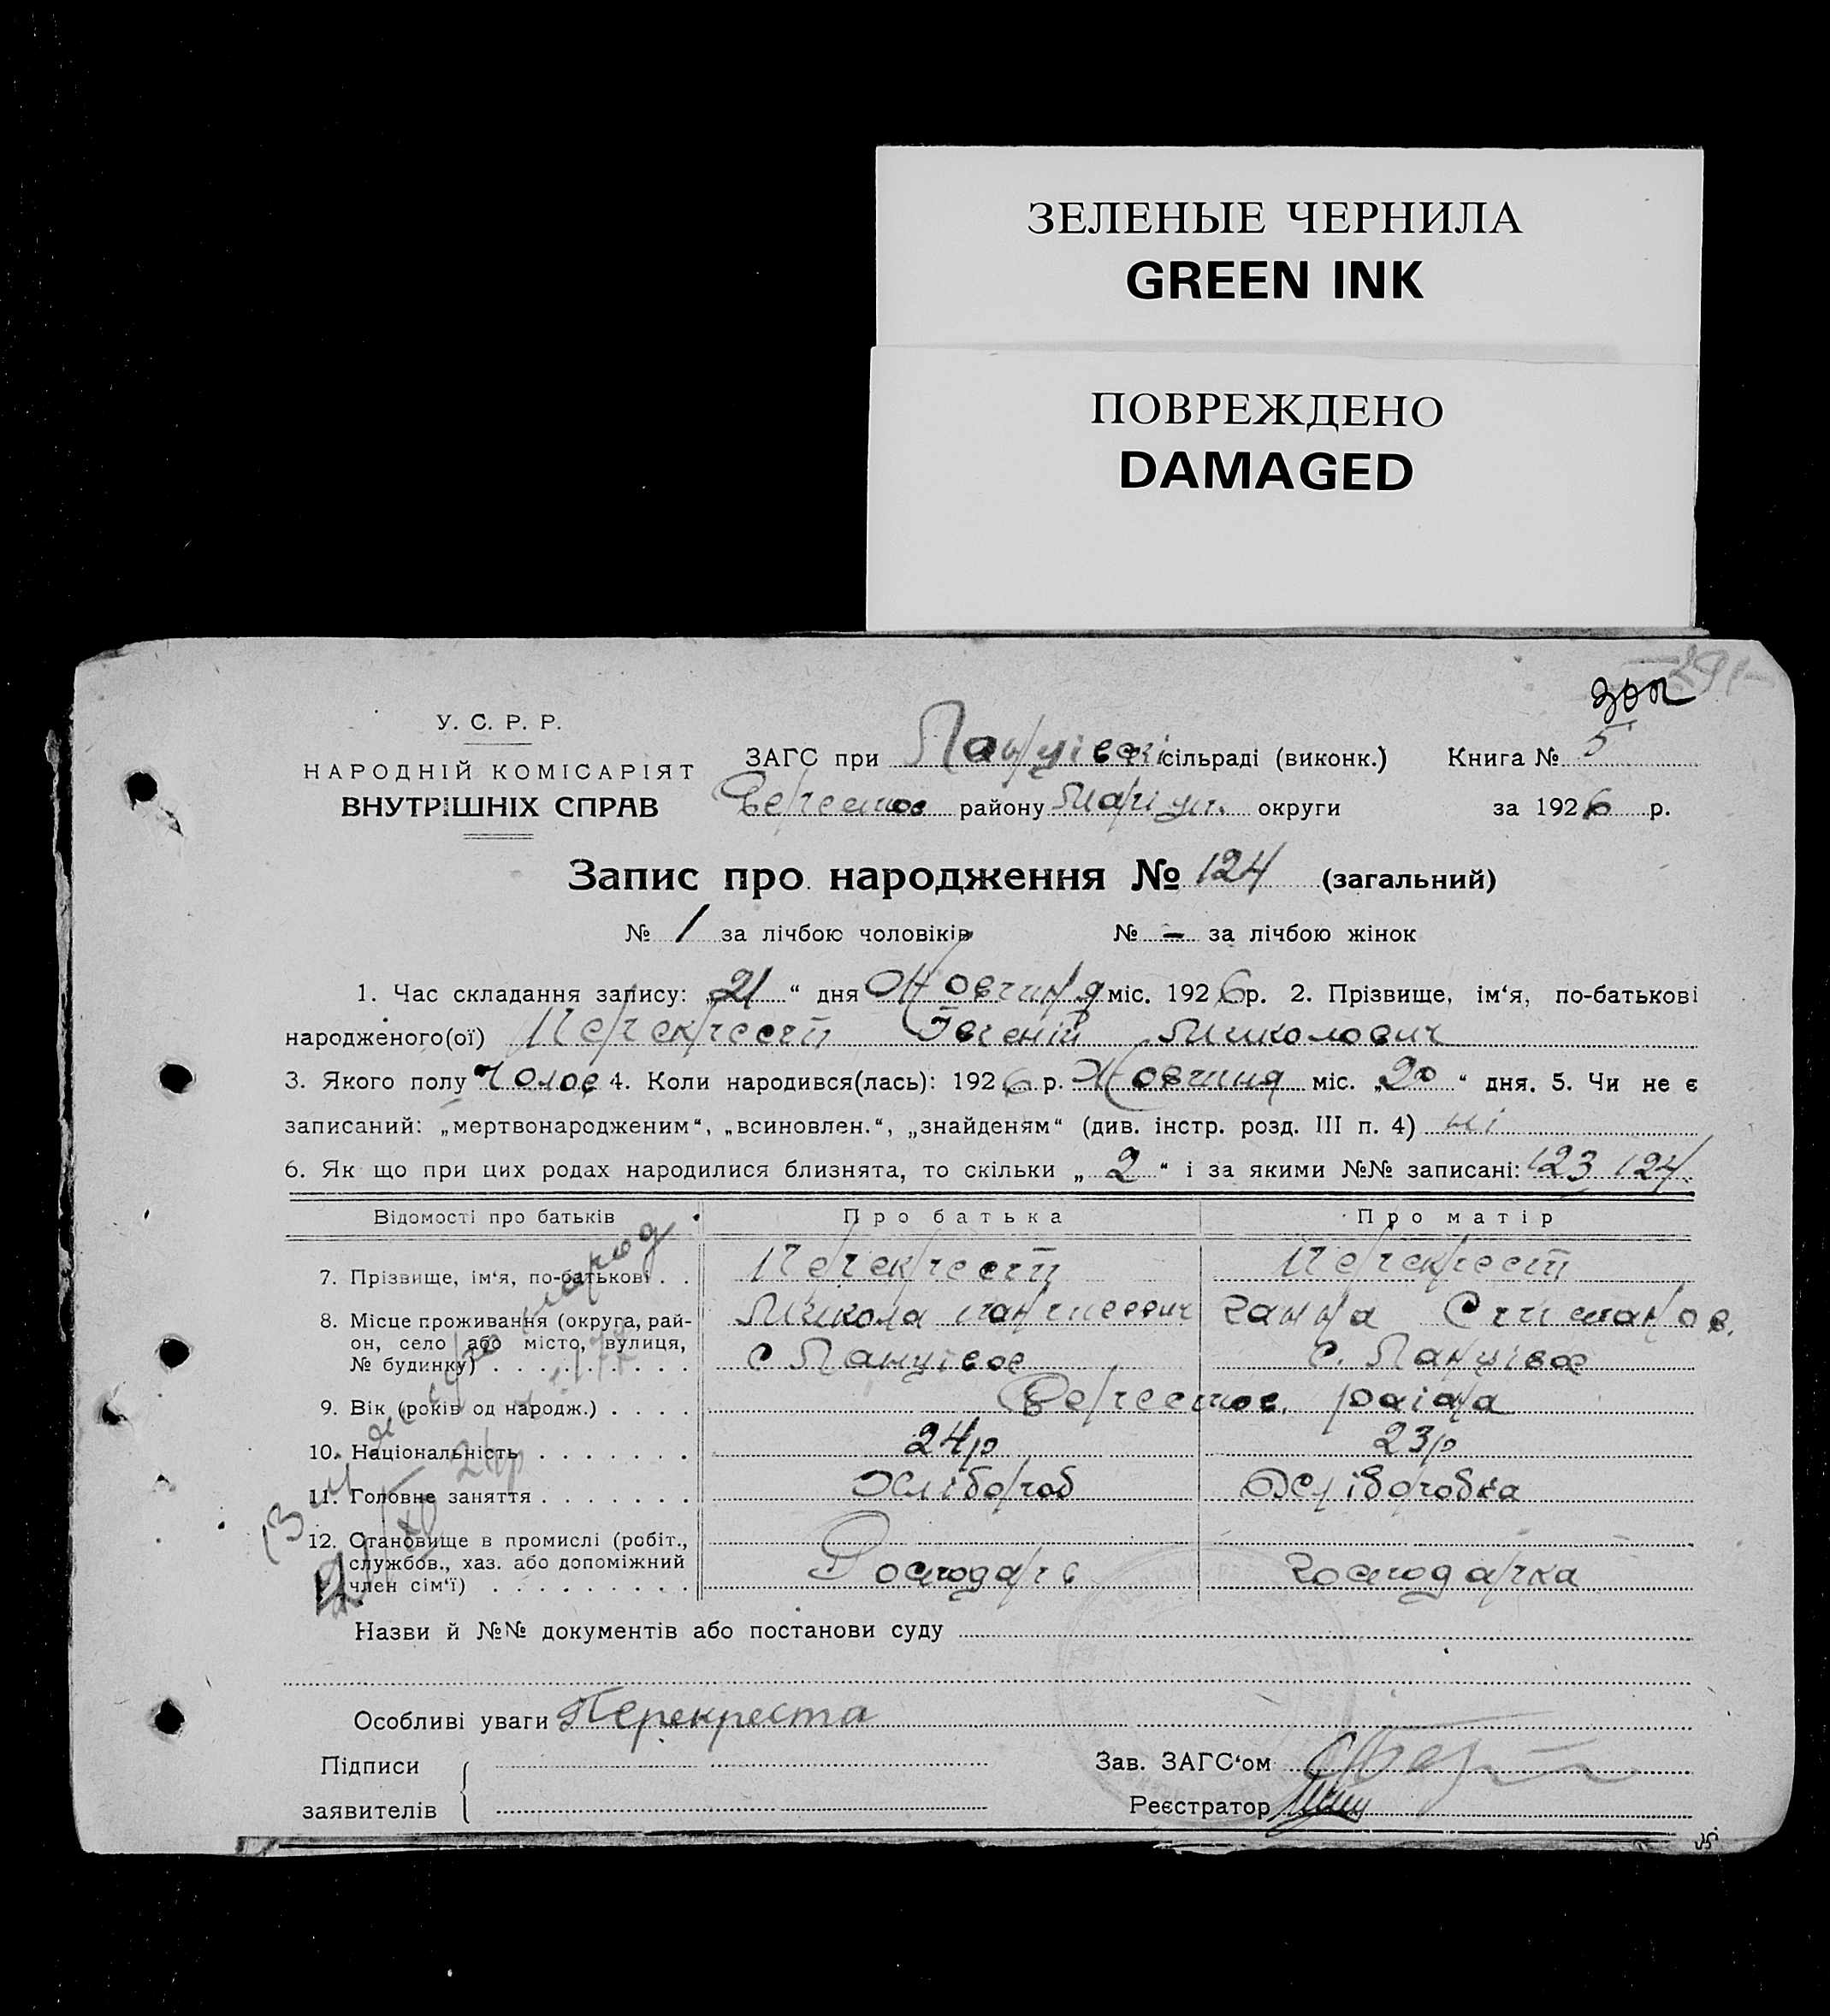 ЗЕЛЕНЫЕ ЧЕРНИЛА
GREEN INK
ПОВРЕЖДЕНО
DAMAGED
У. С. Р. Р.
НАРОДНІЙ КОМІСАРІЯТ
ВНУТРІШНІХ СПРАВ
ЗАГС при сільраді (виконк.) Книга № 5
району Маріуп. округи за 1926 р.
Запис про народження № 124 (загальний)
№ 1 за лічбою чоловіків № - за лічбою жінок
1. Час складання запису: „21“ дня Жовтня міс. 1926 р. 2. Прізвище, ім‘я, по-батькові
народженого(ої) Перекрест Євгеній Миколович
3. Якого полу Чолов 4. Коли народився(лась): 1926 р. Жовтня міс. „20“ дня. 5. Чи не є
записаний: „мертвонародженим“, „всиновлен.“, „знайденям“ (див. інстр. розд. III п. 4) ні
6. Як що при цих родах народилися близнята, то скільки „2“ і за якими №№ записані: 123 124
Відомості про батьків Про батька Про матір
7. Прізвище, ім‘я, по-батькові . . Перекрест Перекрест
8. Місце проживання (округа, рай- Микола Ганна
он, село або місто, вулиця,
№ будинку) . . . . . . . . . с с.
9. Вік (років од народж.) . . . . раіона
10. Національність . . . . . . . 24р 23р
11. Головне заняття . . . . . . . Хлібороб Хліборобка
12. Становище в промислі (робіт.,
службов., хаз. або допоміжний
член сім‘ї) . . . . . . . . . Господарь Господарка
Назви й №№ документів або постанови суду
Особливі уваги Перекреста
Підписи Зав. ЗАГС‘ом
заявителів Реєстратор